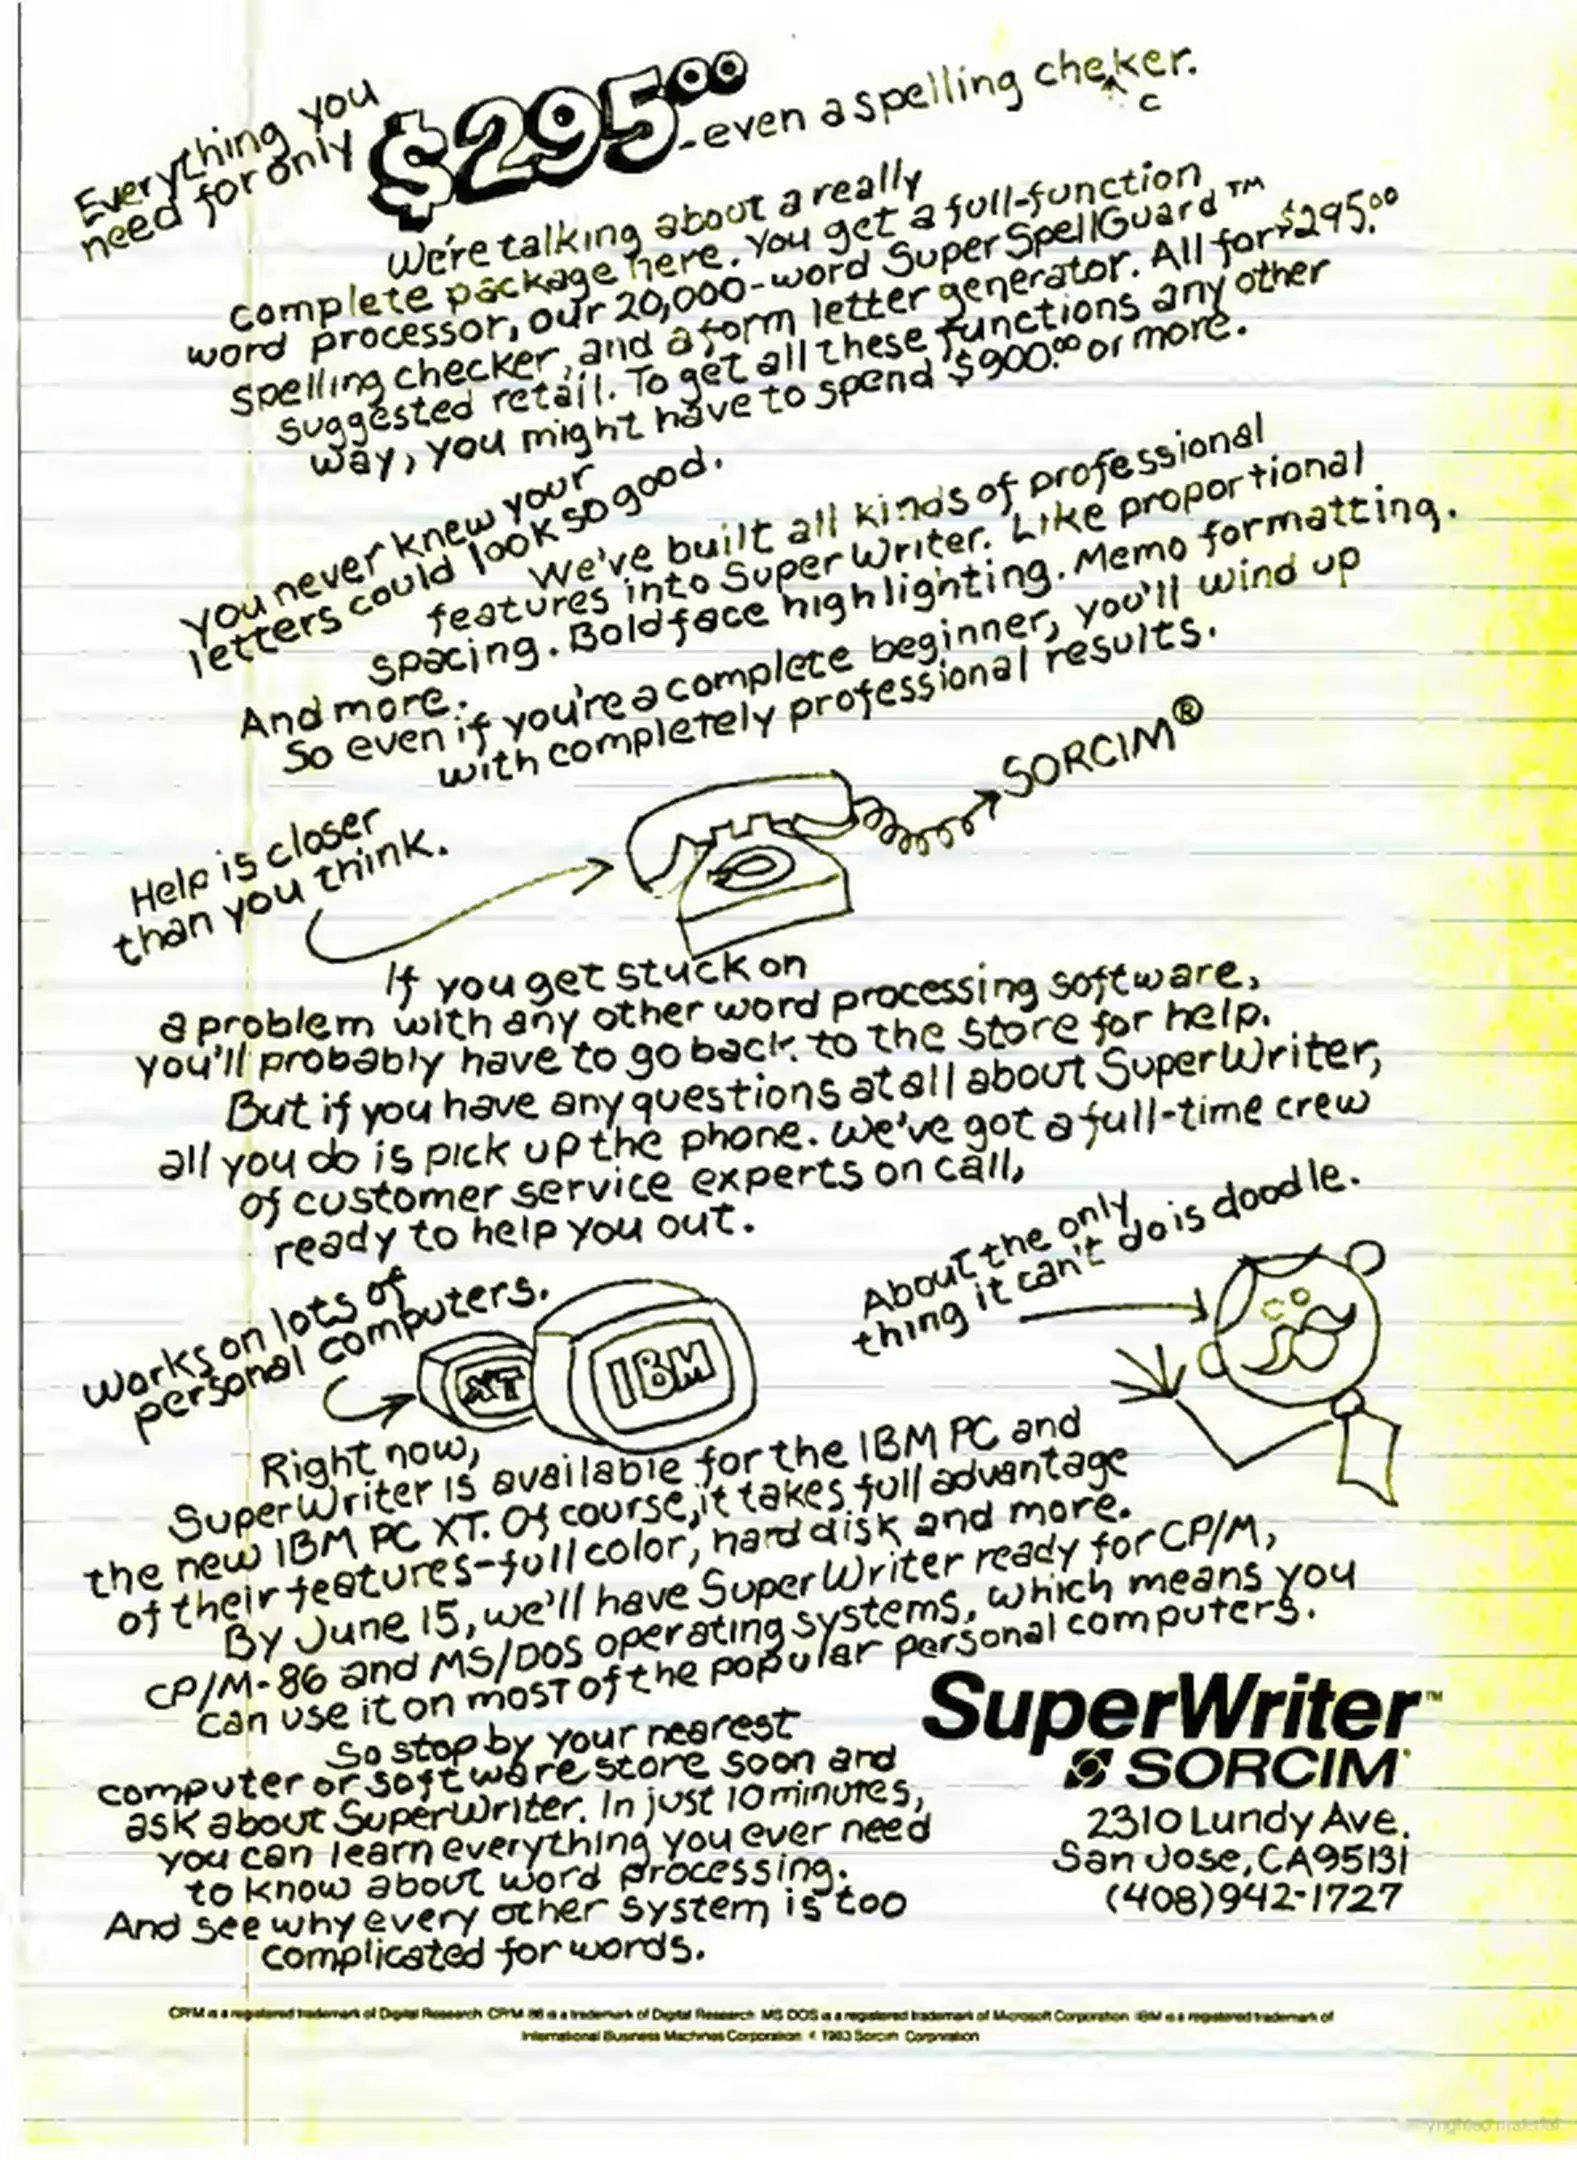 Everything you
need for only $295.00 -even a spelling cheker.
c
We're talking about a really
complete package here. You get a full-function
word processor, our 20,000-word Super SpellGuard™
spelling checker, and a form letter generator. All for $295.00
suggested retail. To get all these functions any other
way, you might have to spend $900.00 or more.
You never knew your
letters could look so good.
We've built all kinds of professional
features into SuperWriter. Like proportional
spacing. Boldface highlighting. Memo formatting.
And more.
So even if you're a complete beginner, you'll wind up
with completely professional results.
Help is closer
than you think.
SORCIM®
If you get stuck on
a problem with any other word processing software,
you'll probably have to go back to the store for help.
But if you have any questions at all about SuperWriter,
all you do is pick up the phone. We've got a full-time crew
of customer service experts on call,
ready to help you out.
Works on lots of
personal computers.
XT
IBM
About the only
thing it can't do is doodle.
Right now,
SuperWriter is available for the IBM PC and
the new IBM PC XT. Of course, it takes full advantage
of their features-full color, hard disk and more.
By June 15, we'll have SuperWriter ready for CP/M,
CP/M-86 and MS/DOS operating systems, which means you
can use it on most of the popular personal computers.
So stop by your nearest
computer or software store soon and
ask about SuperWriter. In just 10 minutes,
you can learn everything you ever need
to know about word processing.
And see why every other system is too
complicated for words.
SuperWriter™
SORCIM
2310 Lundy Ave.
San Jose, CA 95131
(408) 942-1727
CP/M is a registered trademark of Digital Research CP/M-86 is a trademark of Digital Research MS DOS is a registered trademark of Microsoft Corporation IBM is a registered trademark of
International Business Machines Corporation © 1983 Sorcim Corporation
material